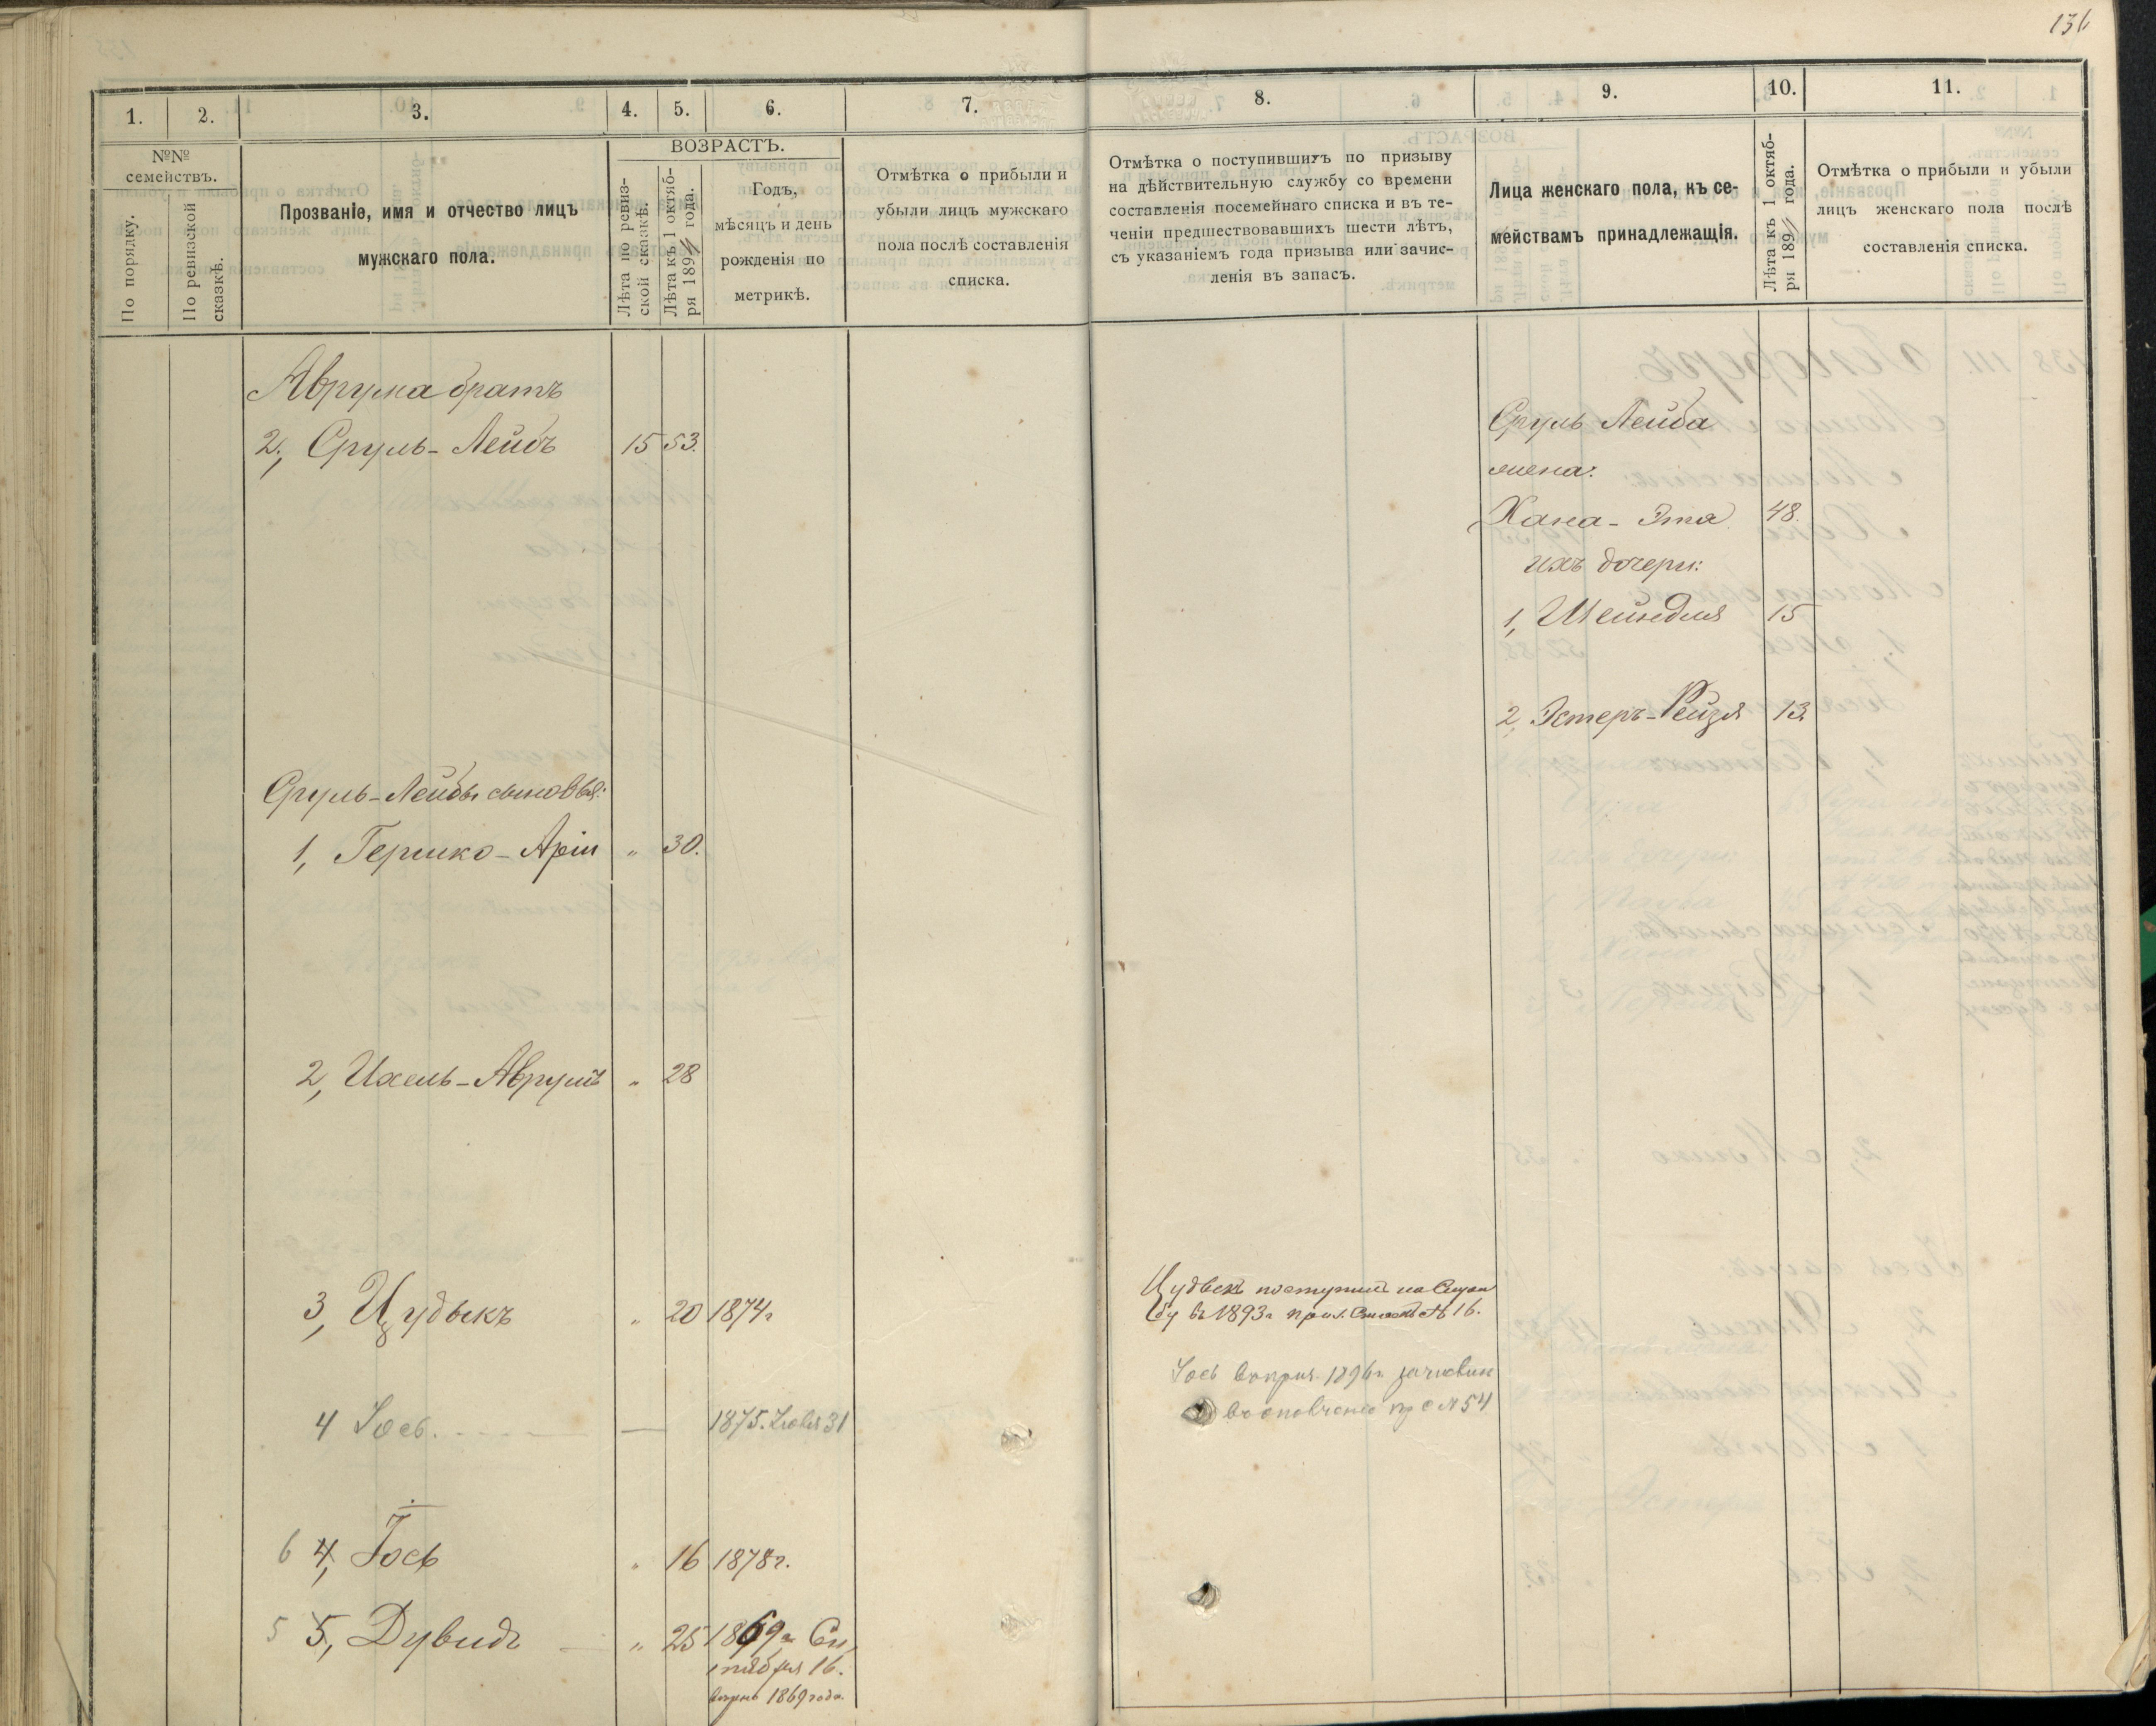 136
1. 2. 3. 4. 5. 6. 7. 8. 9. 10. 11.
№№ семействъ.
По порядку.
По ревизской сказкѣ.
Прозваніе, имя и отчество лицъ
мужскаго пола.
ВОЗРАСТЪ.
Лѣта по ревиз-
ской сказкѣ.
Лѣта къ 1 октяб-
ря 189 года.
Годъ,
мѣсяцъ и день
рожденія по
метрикѣ.
Отмѣтка о прибыли и
убыли лицъ мужскаго
пола послѣ составленія
списка.
Отмѣтка о поступившихъ по призыву
на дѣйствительную службу со времени
составленія посемейнаго списка и въ те-
ченіи предшествовавшихъ шести лѣтъ,
съ указаніемъ года призыва или зачис-
ленія въ запасъ.
Лица женскаго пола, къ се-
мействамъ принадлежащія.
Лѣта къ 1 октяб-
ря 189 года.
Отмѣтка о прибыли и убыли
лицъ женскаго пола послѣ
составленія списка.
Аврума братъ
2, Сруль-Лейбъ 15 53.
Сруль Лейба
жена:
Хана-Эта 48.
ихъ дочери:
1, Шейндля 15
2, Эстеръ-Рейзя 13
Сруль-Лейбы сыновья:
1, Гершко-Арій " 30.
2, Ихель-Аврумъ " 28
3, Цудыкъ " 20 1874г
поступилъ на Служ
бу въ 1893г № 16.
4 Іось. — 1875. 31
Іось 1896г.
№ 54
6 4, Іось " 16 1878г.
5 5, Дувидъ " 25 1869г Сен
тября 16.
1869 года.